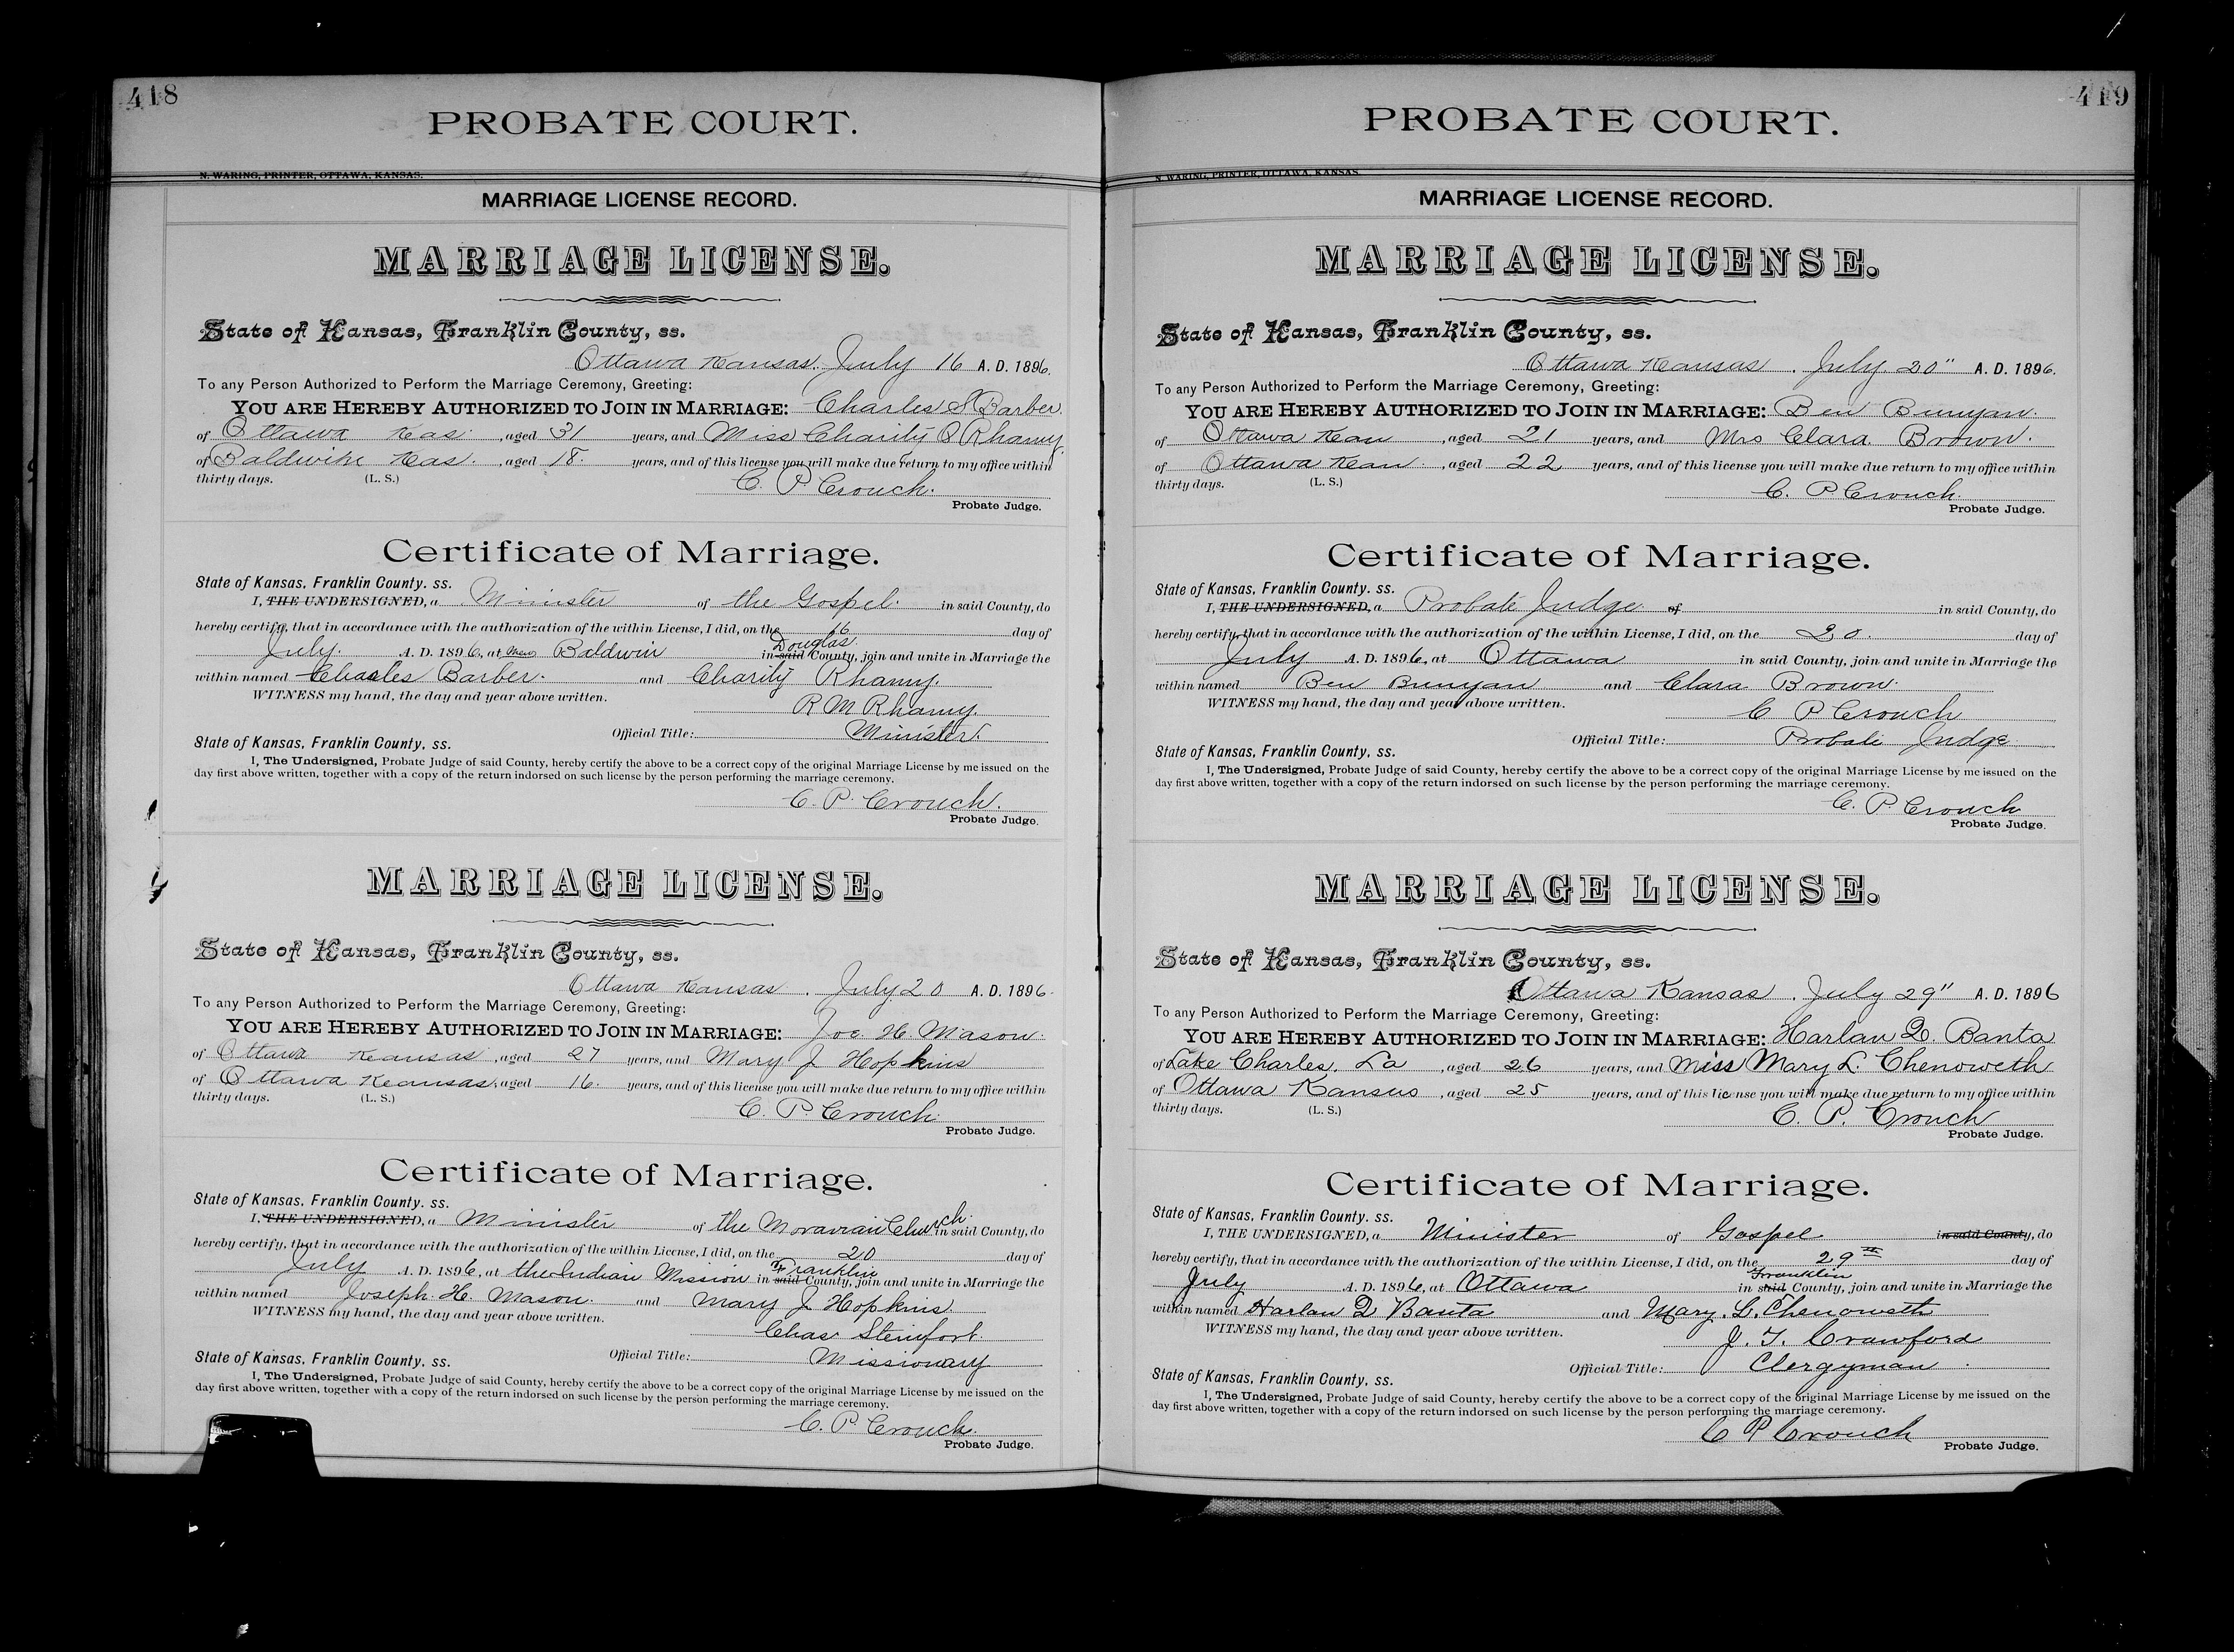 418
PROBATE COURT.
N. WARING, PRINTER, OTTAWA, KANSAS.
MARRIAGE LICENSE RECORD.
MARRIAGE LICENSE.
State of Kansas, Franklin County, ss.
Ottawa Kansas. July 16 A. D. 1896.
To any Person Authorized to Perform the Marriage Ceremony, Greeting:
YOU ARE HEREBY AUTHORIZED TO JOIN IN MARRIAGE: Charles S Barber
of Ottawa Kas. , aged 31 years, and Miss Charity Q Rhamy
of Baldwin Kas. , aged 18. years, and of this license you will make due return to my office within
thirty days. (L. S.) C. P Crouch.
Probate Judge.
Certificate of Marriage.
State of Kansas, Franklin County. ss.
I, THE UNDERSIGNED, a Minister of the Gospel. in said County, do
hereby certify, that in accordance with the authorization of the within License, I did, on the 16 day of
Douglas
July. A. D. 1896, at Near Baldwin in said County, join and unite in Marriage the
within named Charles Barber. and Charity Rhamy.
WITNESS my hand, the day and year above written.
R M Rhamy.
Official Title: Minister.
State of Kansas, Franklin County. ss.
I, The Undersigned, Probate Judge of said County, hereby certify the above to be a correct copy of the original Marriage License by me issued on the
day first above written, together with a copy of the return indorsed on such license by the person performing the marriage ceremony.
C. P. Crouch.
Probate Judge.
MARRIAGE LICENSE.
State of Kansas, Franklin County, ss.
Ottawa Kansas . July 20 A. D. 1896
To any Person Authorized to Perform the Marriage Ceremony, Greeting:
YOU ARE HEREBY AUTHORIZED TO JOIN IN MARRIAGE: Joe H. Mason.
of Ottawa Kansas , aged 27 years, and Mary J Hopkins
of Ottawa Kansas, aged 16. years, and of this license you will make due return to my office within
thirty days. (L. S.) C. P. Crouch.
Probate Judge.
Certificate of Marriage.
State of Kansas, Franklin County. ss.
I, THE UNDERSIGNED, a Minister of the Moravian Church in said County, do
hereby certify, that in accordance with the authorization of the within License, I did, on the 20 day of
Franklin
July A. D. 1896, at the Indian Mission in said County, join and unite in Marriage the
within named Joseph H. Mason. and Mary J Hopkins.
WITNESS my hand, the day and year above written.
Chas. Steinfort.
Official Title: Missionary
State of Kansas, Franklin County. ss.
I, The Undersigned, Probate Judge of said County, hereby certify the above to be a correct copy of the original Marriage License by me issued on the
day first above written, together with a copy of the return indorsed on such license by the person performing the marriage ceremony.
C. P. Crouch.
Probate Judge.
419
PROBATE COURT.
N. WARING, PRINTER, OTTAWA, KANSAS.
MARRIAGE LICENSE RECORD.
MARRIAGE LICENSE.
State of Kansas, Franklin County, ss.
Ottawa Kansas . July. 20" A. D. 1896.
To any Person Authorized to Perform the Marriage Ceremony, Greeting:
YOU ARE HEREBY AUTHORIZED TO JOIN IN MARRIAGE: Ben Bunyan.
of Ottawa Kan , aged 21 years, and Mrs Clara Brown.
of Ottawa Kan. , aged 22 years, and of this license you will make due return to my office within
thirty days. (L. S.) C. P Crouch.
Probate Judge.
Certificate of Marriage.
State of Kansas, Franklin County. ss.
I, THE UNDERSIGNED, a Probate Judge of in said County, do
hereby certify, that in accordance with the authorization of the within License, I did, on the 20. day of
July A. D. 1896, at Ottawa in said County, join and unite in Marriage the
within named Ben Bunyan and Clara Brown.
WITNESS my hand, the day and year above written.
C P Crouch
Official Title: Probate Judge
State of Kansas, Franklin County. ss.
I, The Undersigned, Probate Judge of said County, hereby certify the above to be a correct copy of the original Marriage License by me issued on the
day first above written, together with a copy of the return indorsed on such license by the person performing the marriage ceremony.
C. P. Crouch
Probate Judge.
MARRIAGE LICENSE.
State of Kansas, Franklin County, ss.
Ottawa Kansas . July 29" A. D. 1896
To any Person Authorized to Perform the Marriage Ceremony, Greeting:
YOU ARE HEREBY AUTHORIZED TO JOIN IN MARRIAGE: Harlan Q. Banta
of Lake Charles. La , aged 26 years, and Miss Mary L. Chenoweth
of Ottawa Kansas , aged 25 years, and of this license you will make due return to my office within
thirty days. (L. S.) C. P. Crouch
Probate Judge.
Certificate of Marriage.
State of Kansas, Franklin County. ss.
I, THE UNDERSIGNED, a Minister of Gospel in said County, do
hereby certify, that in accordance with the authorization of the within License, I did, on the 29th day of
Franklin
July A. D. 1896, at Ottawa in said County, join and unite in Marriage the
within named Harlan Q Banta and Mary. L. Chenoweth
WITNESS my hand, the day and year above written.
J. T. Crawford
Official Title: Clergyman.
State of Kansas, Franklin County. ss.
I, The Undersigned, Probate Judge of said County, hereby certify the above to be a correct copy of the original Marriage License by me issued on the
day first above written, together with a copy of the return indorsed on such license by the person performing the marriage ceremony.
C P Crouch
Probate Judge.